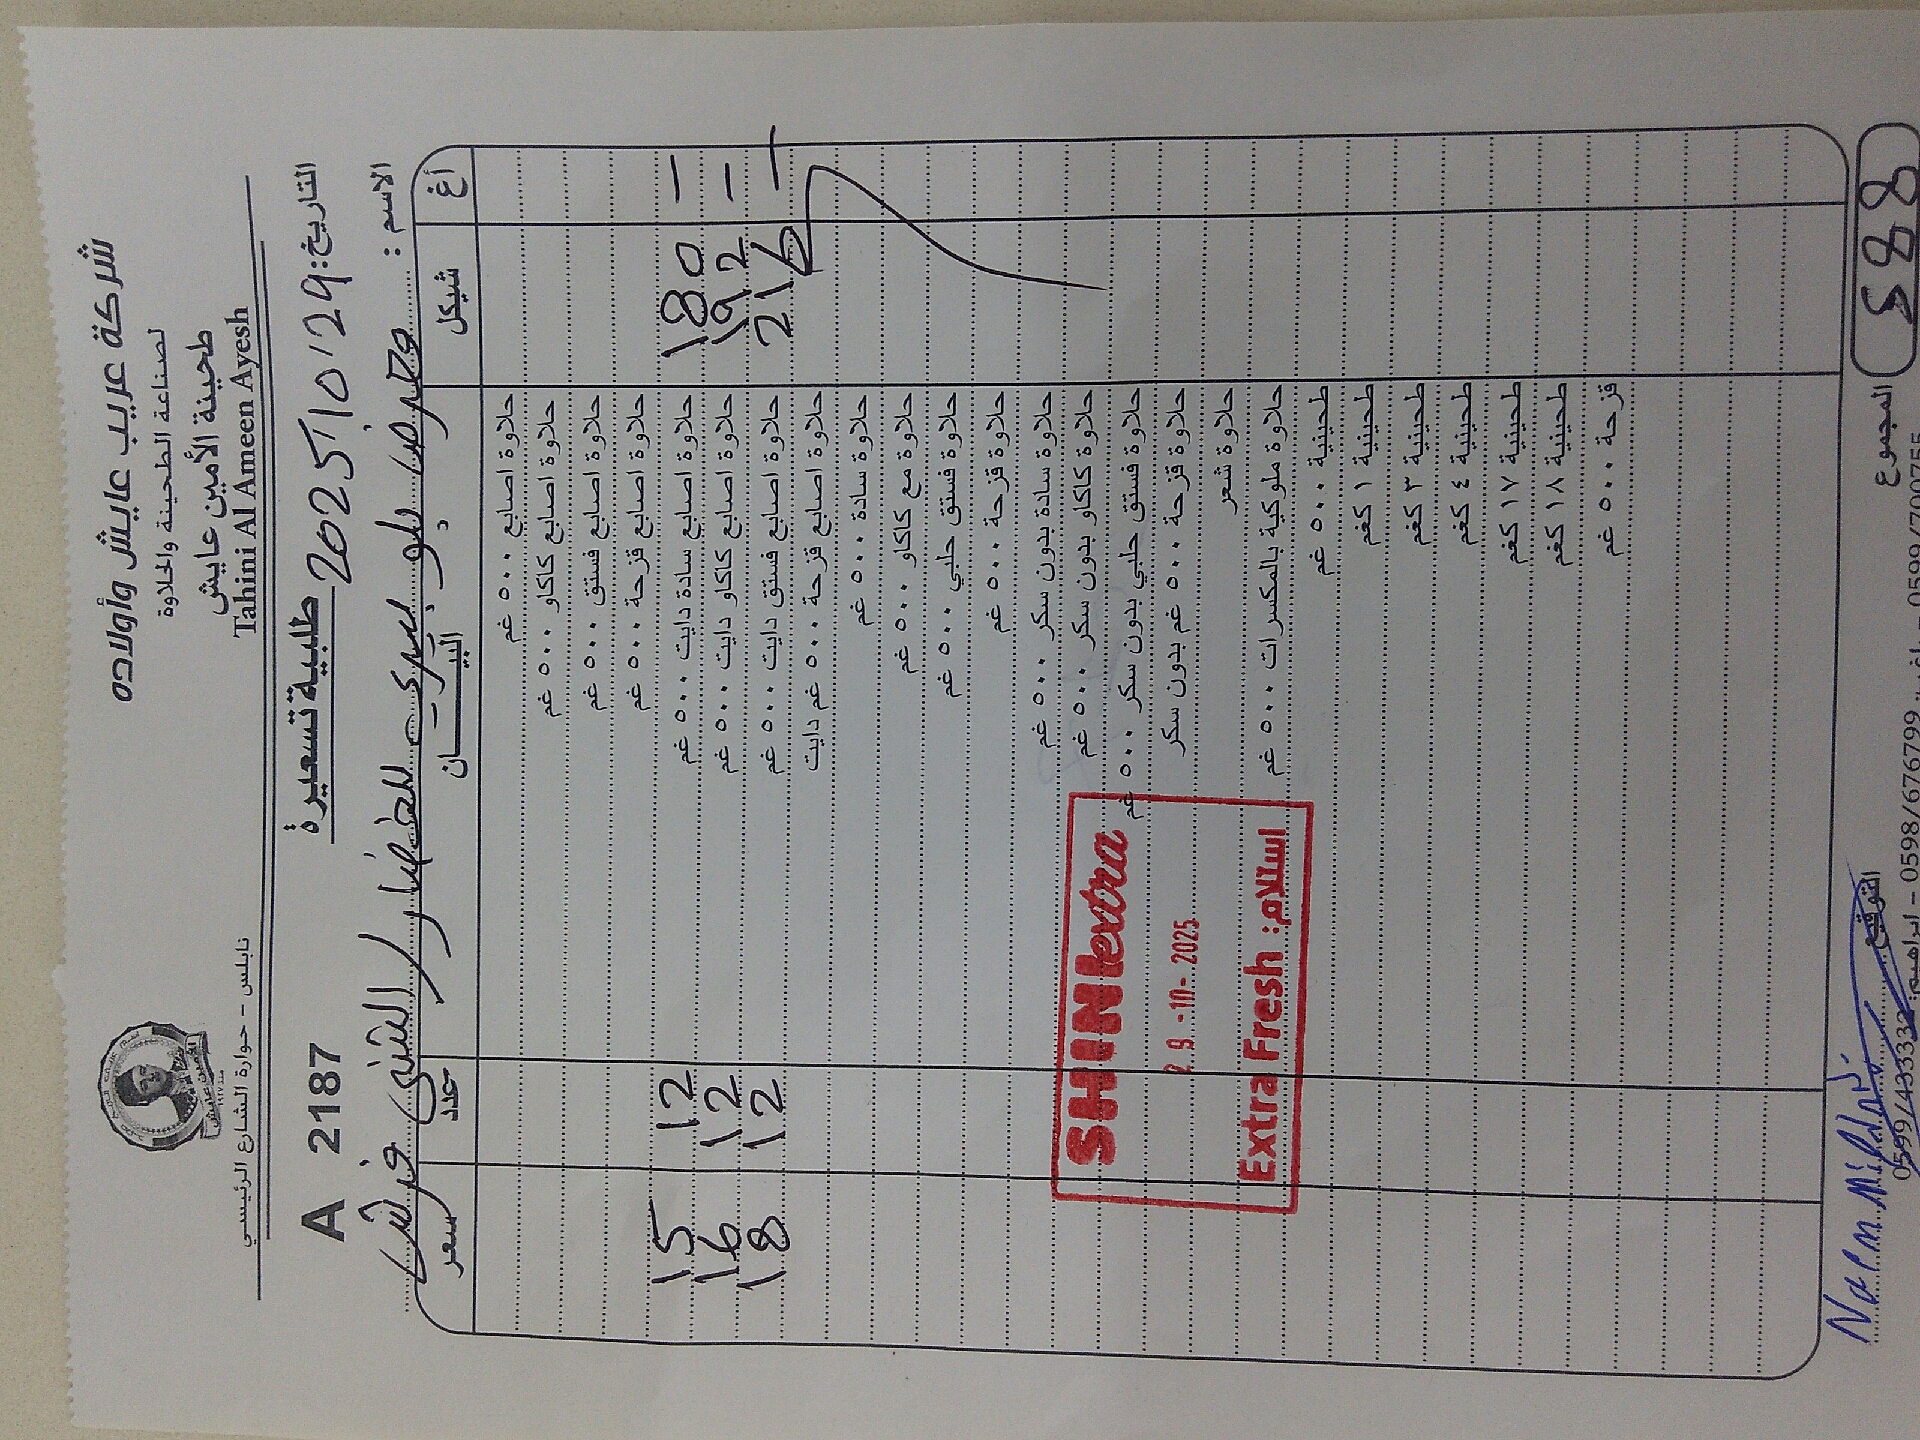 شركة عريب عايش وأولاده
لصناعة الطحينة والحلاوة
طحينة الأمين عايش
Tahini Al Ameen Ayesh
نابلس - حوارة الشارع الرئيسي
التاريخ: 2025/10/29
طلبية تسعيرة
A 2187
الاسم : معرض بلو بيري للخضار
أغ شيكل البيـــــــان عدد سعر
حلاوة اصابع ٥٠٠ غم
حلاوة اصابع كاكاو ٥٠٠ غم
حلاوة اصابع فستق ٥٠٠ غم
حلاوة اصابع قزحة ٥٠٠ غم
— 180 حلاوة اصابع سادة دايت ٥٠٠ غم 12 15
— 192 حلاوة اصابع كاكاو دايت ٥٠٠ غم 12 16
— 216 حلاوة اصابع فستق دايت ٥٠٠ غم 12 18
حلاوة اصابع قزحة ٥٠٠ غم دايت
حلاوة سادة ٥٠٠ غم
حلاوة مع كاكاو ٥٠٠ غم
حلاوة فستق حلبي ٥٠٠ غم
حلاوة قزحة ٥٠٠ غم
حلاوة سادة بدون سكر ٥٠٠ غم
حلاوة كاكاو بدون سكر ٥٠٠ غم
حلاوة فستق حلبي بدون سكر ٥٠٠ غم
حلاوة قزحة ٥٠٠ غم بدون سكر
حلاوة شعر
حلاوة ملوكية بالمكسرات ٥٠٠ غم
طحينية ٥٠٠ غم
طحينية ١ كغم
طحينية ٣ كغم
طحينية ٤ كغم
طحينية ١٧ كغم
طحينية ١٨ كغم
قزحة ٥٠٠ غم
SHINI extra
29-10-2025
Extra Fresh : استلام
588 المجموع
التوقيع
0598/676799 -